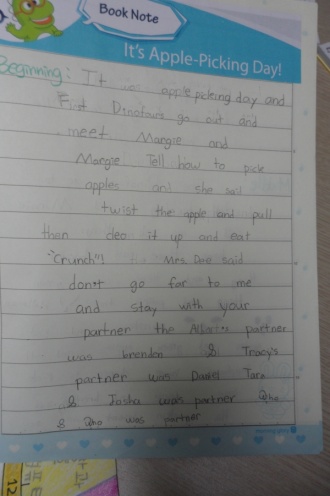 Book Note
It's Apple-Picking Day!
Beginning: It apple picking day and
First Dinotours go out and
meet Margie and
Margie Tell how to pick
apples and she said
twist the apple and pull
then cleo it up and eat
"Crunch"! Mrs. Dee said
don't go far to me
and stay with your
partner the partner
was brendon & Tracy's
partner was Daniel Tara
& Josha was partner
& was partner
12